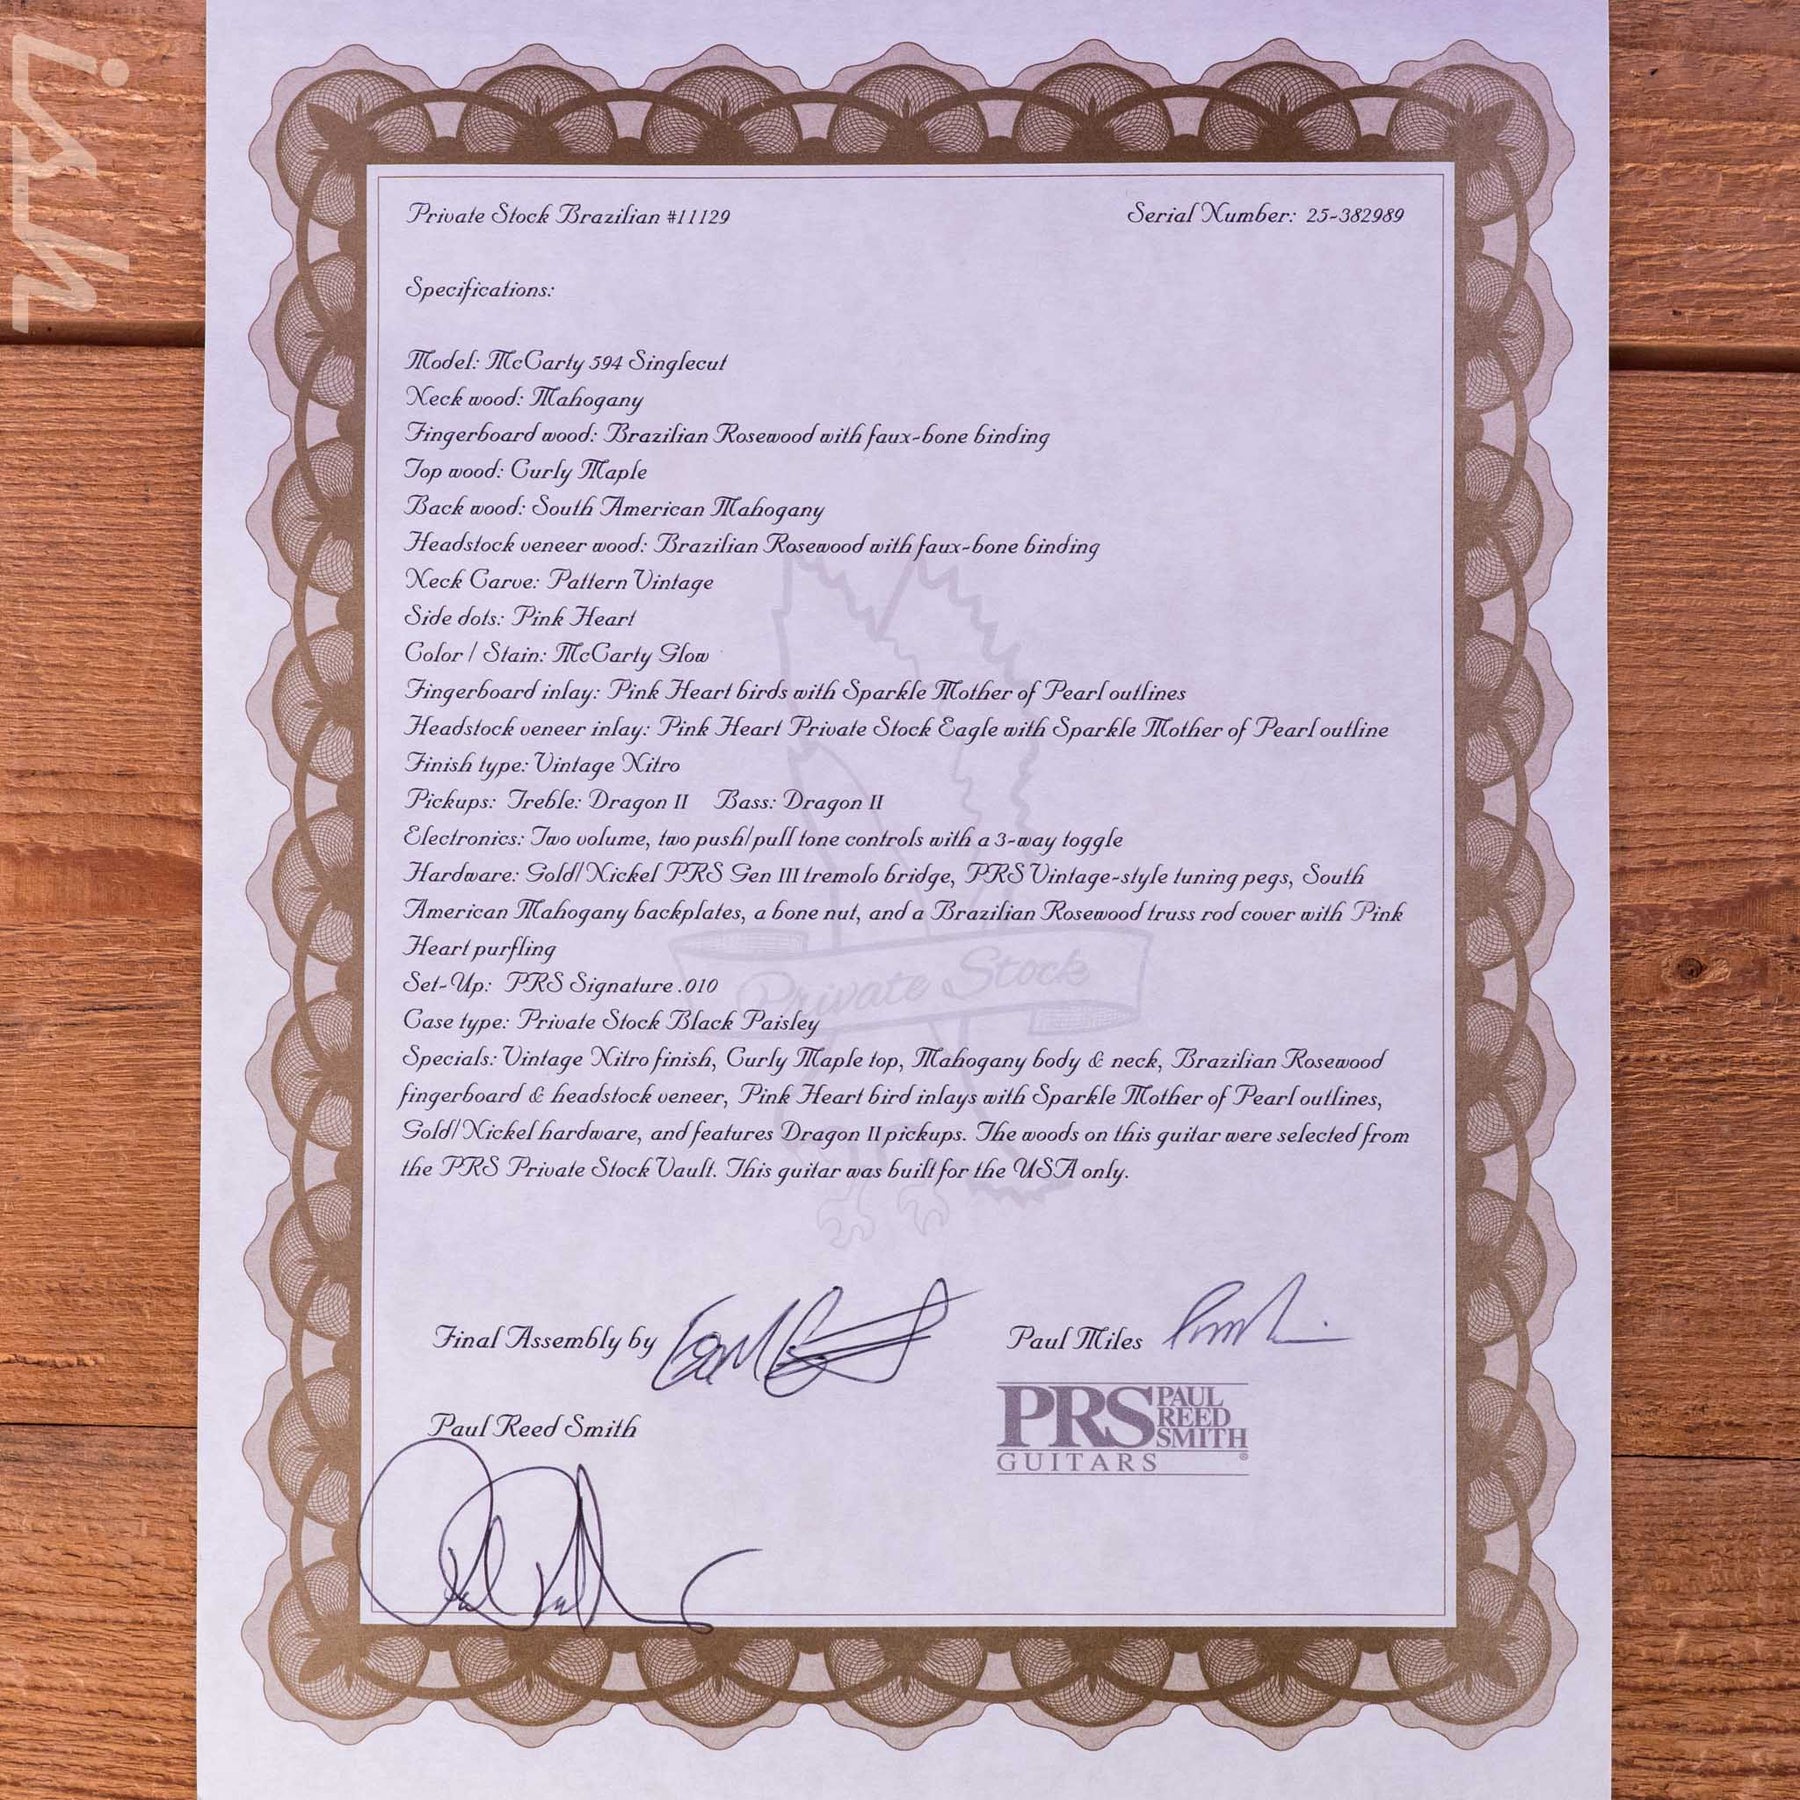 ish
Private Stock Brazilian #11129 Serial Number: 25-382989
Specifications:
Model: McCarty 594 Singlecut
Neck wood: Mahogany
Fingerboard wood: Brazilian Rosewood with faux-bone binding
Top wood: Curly Maple
Back wood: South American Mahogany
Headstock veneer wood: Brazilian Rosewood with faux-bone binding
Neck Carve: Pattern Vintage
Side dots: Pink Heart
Color / Stain: McCarty Glow
Fingerboard inlay: Pink Heart birds with Sparkle Mother of Pearl outlines
Headstock veneer inlay: Pink Heart Private Stock Eagle with Sparkle Mother of Pearl outline
Finish type: Vintage Nitro
Pickups: Treble: Dragon II Bass: Dragon II
Electronics: Two volume, two push/pull tone controls with a 3-way toggle
Hardware: Gold/Nickel PRS Gen III tremolo bridge, PRS Vintage-style tuning pegs, South
American Mahogany backplates, a bone nut, and a Brazilian Rosewood truss rod cover with Pink
Heart purfling
Set-Up: PRS Signature .010
Private Stock
Case type: Private Stock Black Paisley
Specials: Vintage Nitro finish, Curly Maple top, Mahogany body & neck, Brazilian Rosewood
fingerboard & headstock veneer, Pink Heart bird inlays with Sparkle Mother of Pearl outlines,
Gold/Nickel hardware, and features Dragon II pickups. The woods on this guitar were selected from
the PRS Private Stock Vault. This guitar was built for the USA only.
Final Assembly by
Paul Miles
Paul Reed Smith
PRS PAUL
REED
SMITH
GUITARS ®